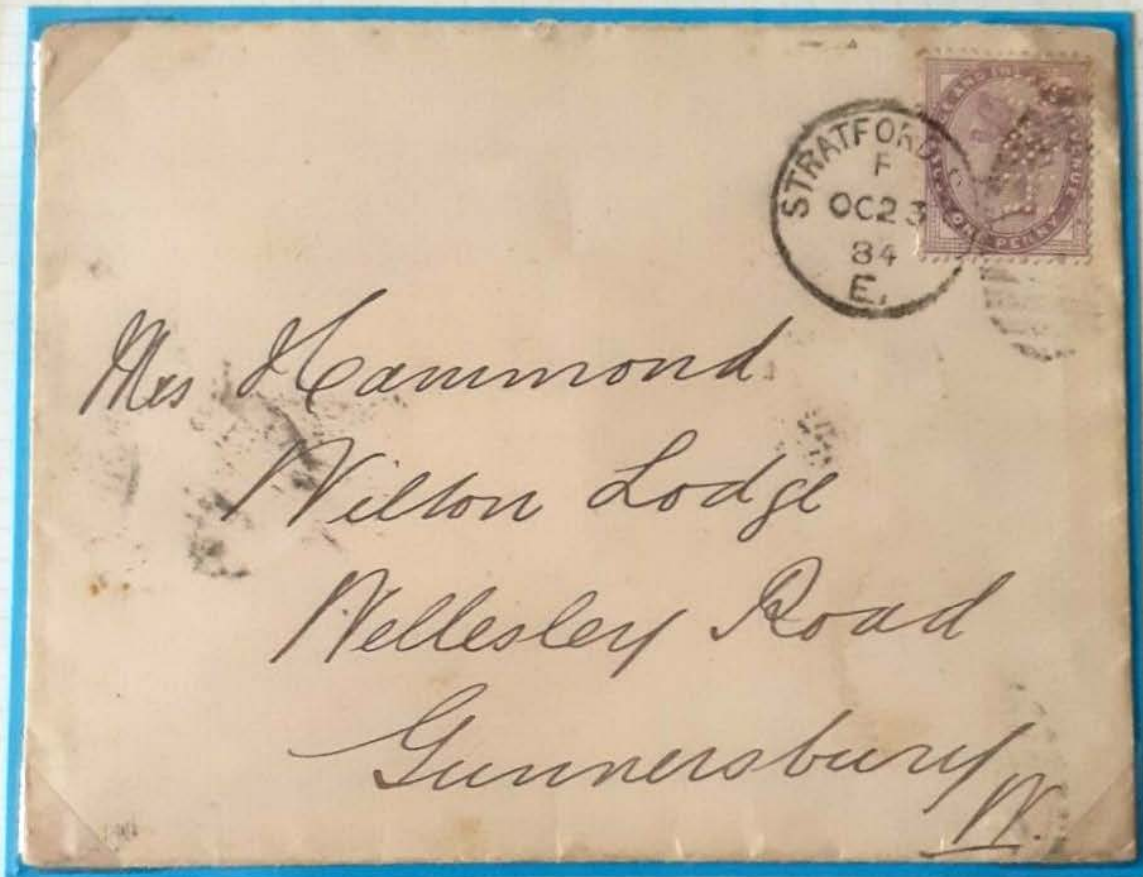 STRATFORD
F
OC 23
84
E.
POSTAGE AND INLAND REVENUE
ONE PENNY
Mrs Hammond
Wilton Lodge
Wellesley Road
Gunnersbury
W.